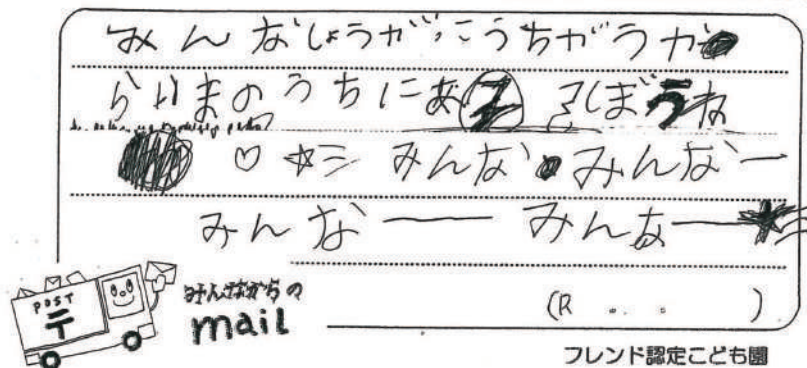 みんなしょうがっこうちがうか
らいまのうちにあそぼうね
♡☆ミ みんな みんなー
みんなー みんなー★
POST
〒
みんなからの
mail
(R . . )
フレンド認定こども園